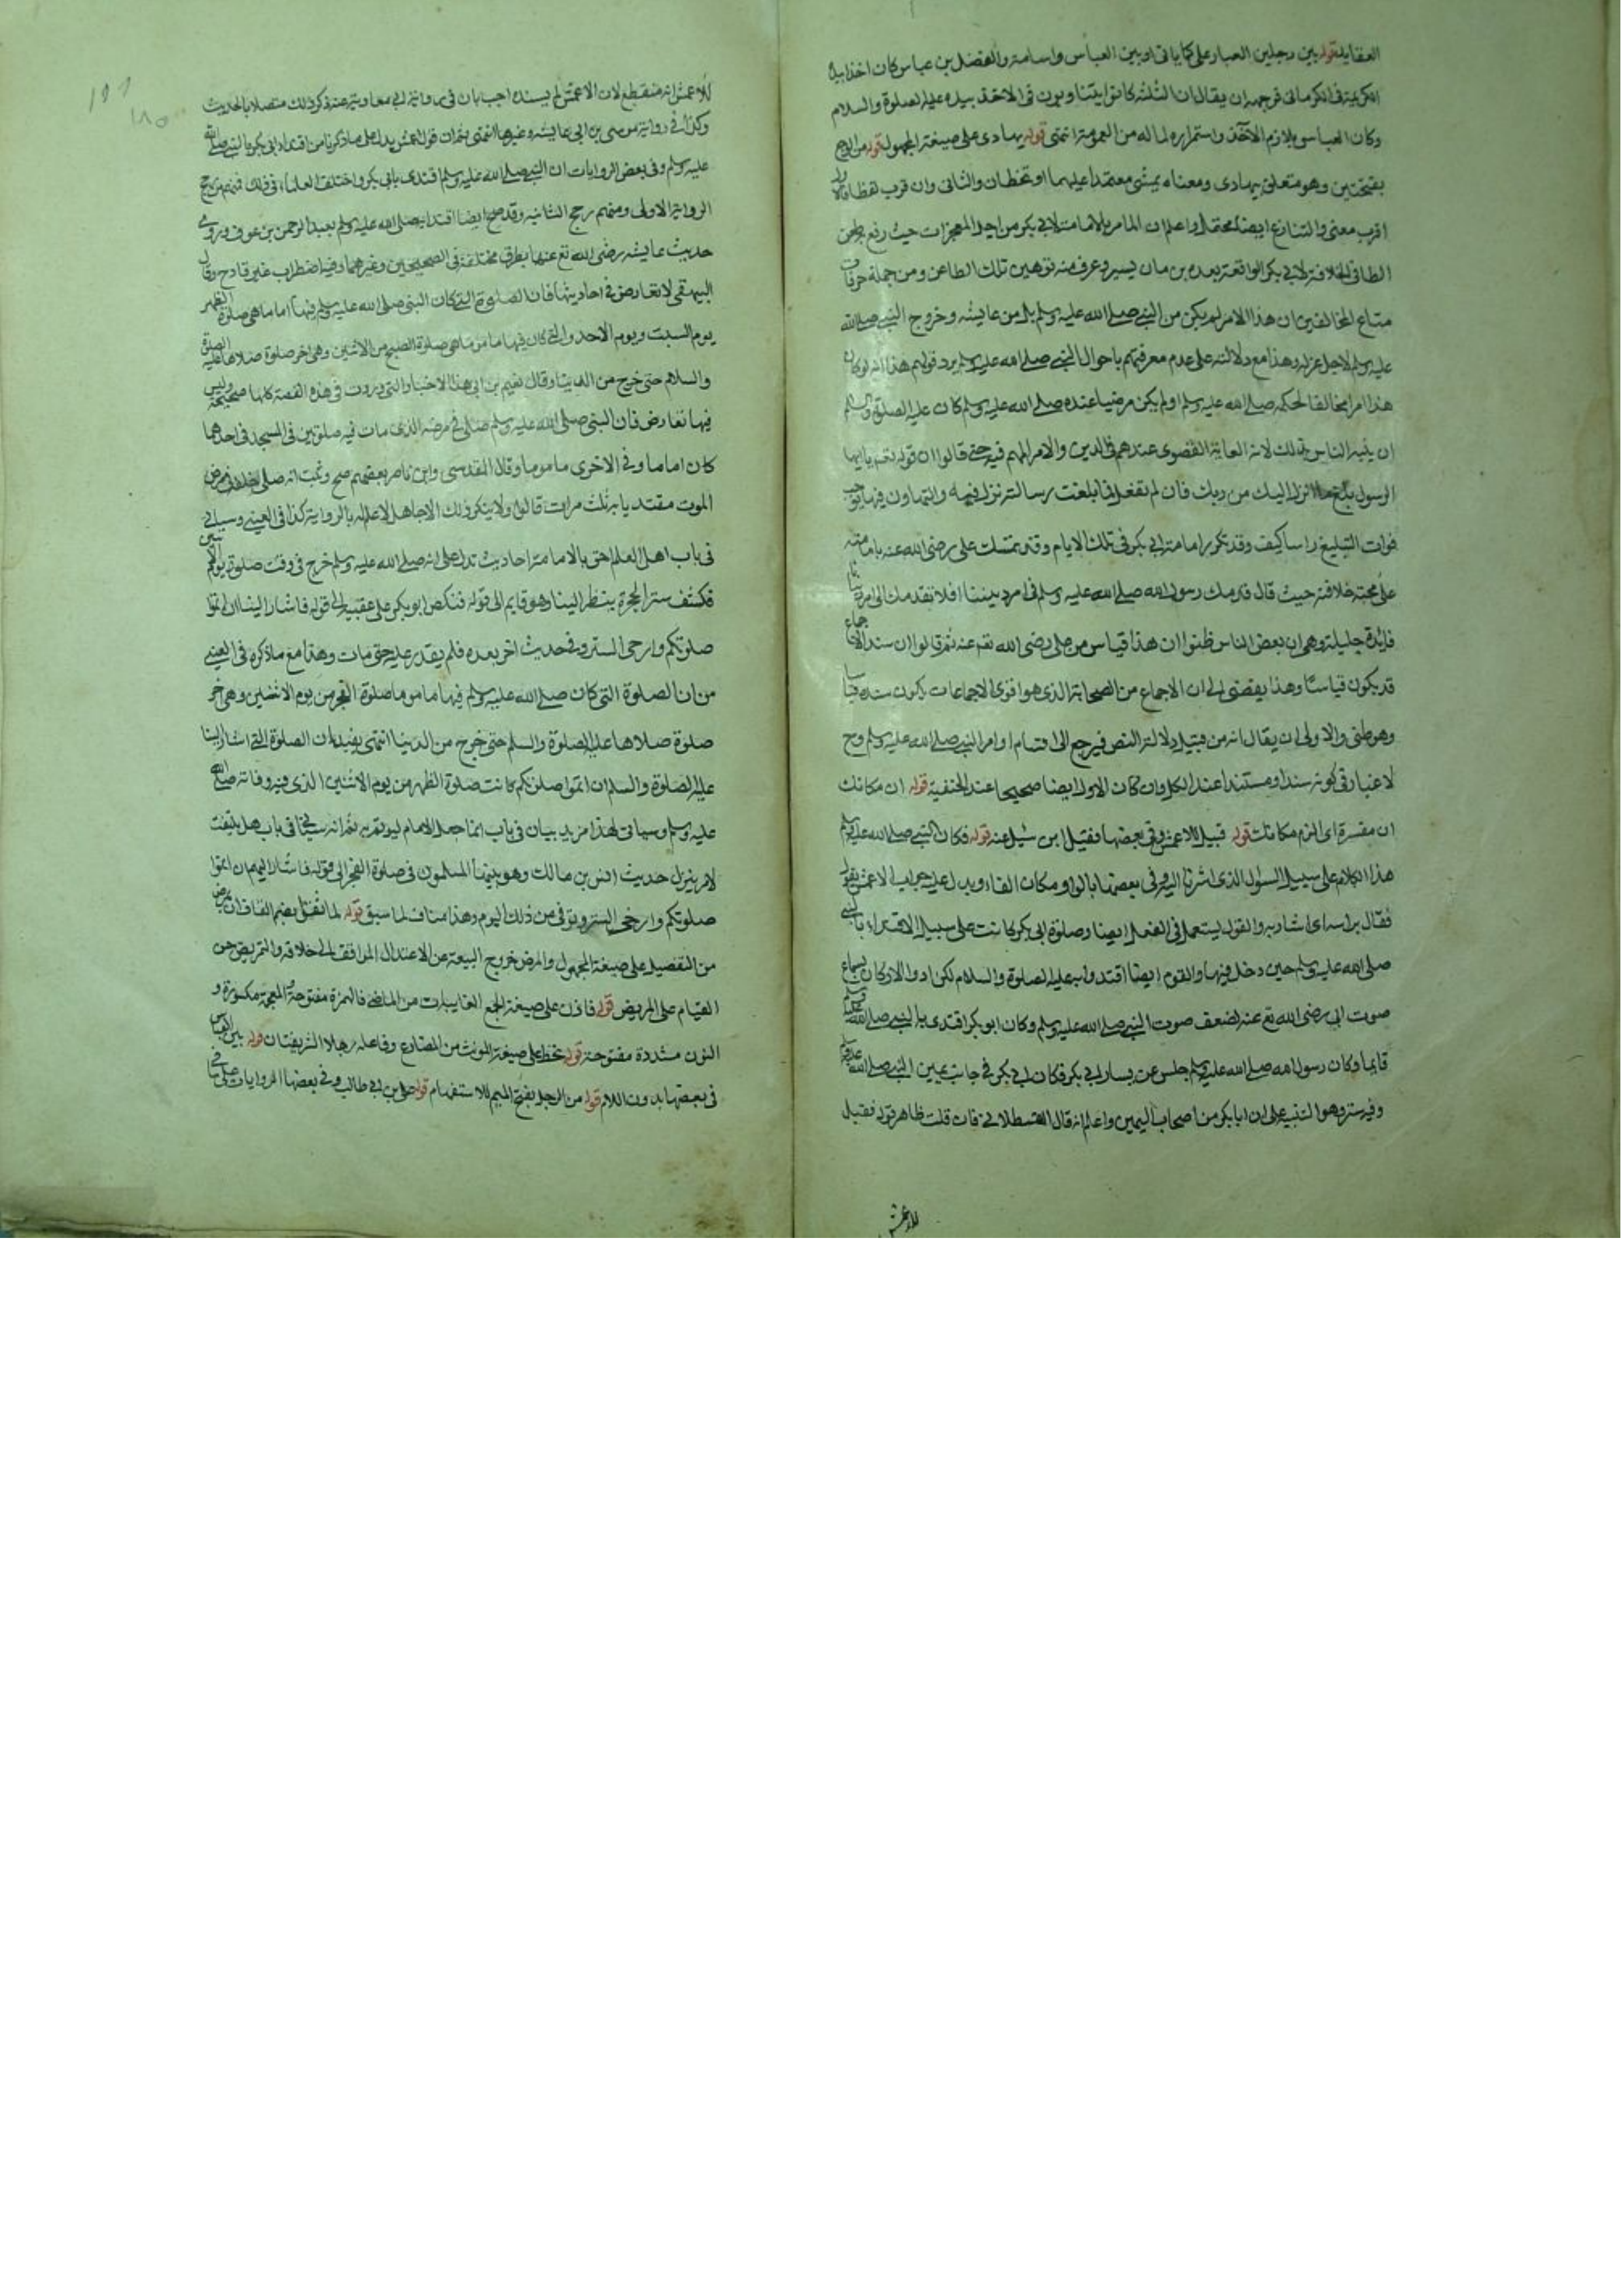 العقايد قوله بين رجلين العبار على كما ياتى اوبين العباس واسامة والفضل بن عباس كان اخذ بيده
الكريمة فى الكرمانى فوجهه ان يقال ان الثلثة كانوا يتناوبون فى الاخذ بيده عليه الصلوة والسلام
وكان العباس يلازم الاخذ واستمراره لما له من العمومة انتهى قوله يهادى على صيغة المجهول قوله من الوجع
بفتحتين وهو متعلق بيهادى ومعناه يمشى معتمدا عليهما او تخطان والثانى وان قرب لفظا فالاول
اقرب معنى والتنازع ايضا محتمل واعلم ان المامر بالامامة لابى بكر من اجل المعجزات حيث رفع به طعن
الطاعن فى الخلافة لابى بكر الواقعة بعده بزمان يسير وعرف منه توهين تلك الطاعن ومن جملة خرفات
متاع المخالفين ان هذا الامر لم يكن من النبى صلى الله عليه وسلم بل من عايشه وخروج النبى صلى الله
عليه وسلم لاجل عزله وهذا مع دلالته على عدم معرفتهم باحوال النبى صلى الله عليه وسلم يرد قولهم هذا انه لو كان
هذا امرا مخالفا لحكمه صلى الله عليه وسلم او لم يكن مرضيا عنده صلى الله عليه وسلم كان عليه الصلوة والسلام
ان ينبه الناس بذلك لانه الغاية القصوى عندهم فى الدين والامر المهم فيه حتى قالوا ان قوله تعم يا ايها
الرسول بلغ ما انزل اليك من ربك فان لم تفعل فما بلغت رسالته نزل فيه والتهاون فيها يوجب
فوات التبليغ راسا كيف وقد تكرر امامة ابى بكر فى تلك الايام وقد تمسك على رضى الله عنه بامامته
على صحة خلافته حيث قال قدمك رسول الله صلى الله عليه وسلم فى امر ديننا افلا نقدمك الى امر دنيانا
فايدة جليلة وهى ان بعض الناس ظنوا ان هذا قياس من على رضى الله تعم عنه ثم قالوا ان سند الاجماع
قد يكون قياسا وهذا يفضى الى ان الاجماع من الصحابة الذى هو اقوى الاجماعات يكون سنده قياسا
وهو ظنى والاولى ان يقال انه من قبيل دلالة النص فيرجع الى اقسام اوامر النبى صلى الله عليه وسلم وح
لا غبار فى كونه سندا ومستندا عند الكل وان كان الاول ايضا صحيحا عند الحنفية قوله ان مكانك
ان مفسرة اى الزم مكانك قوله قيل للاعمش وفى بعضها فقيل ابن سئيل عنه قوله فكان النبى صلى الله عليه وسلم
هذا الكلام على سبيل السوال الذى اشرنا اليه وفى بعضها بالواو مكان الفا ويدل عليه جواب الاعمش بقوله
فقال براسه اى اشار به والقول يستعمل فى الفعل ايضا وصلوة ابى بكر كانت على سبيل الاقتداء بالنبى
صلى الله عليه وسلم حين دخل فيها والقوم ايضا اقتدوا به عليه الصلوة والسلام لكن ادوا الاركان بسماع
صوت ابى رضى الله تع عنه لضعف صوت النبى صلى الله عليه وسلم وكان ابو بكر اقتدى بالنبى صلى الله عليه وسلم
قايما وكان رسول الله صلى الله عليه وسلم جلس عن يسار ابى بكر فكان ابى بكر فى جانب يمين النبى صلى الله عليه وسلم
وفيه سر وهو التنبيه على ان ابا بكر من اصحاب اليمين واعلم انه قال القسطلانى فان قلت ظاهر قوله فقيل
للاعمش
للاعمش انه منقطع لان الاعمش لم يسنده اجيب بان فى رواية ابى معاوية عنه ذكر ذلك متصلا بالحديث
وكذا فى رواية موسى بن ابى عايشه وغيرها انتهى ثم ان قول الاعمش يدل على ما ذكرنا من اقتداء ابى بكر بالنبى صلى الله
عليه وسلم وفى بعض الروايات ان النبى صلى الله عليه وسلم اقتدى بابى بكر واختلف العلماء فى ذلك فمنهم رجح
الرواية الاولى ومنهم رجح الثانيه وقد صح ايضا اقتداءه صلى الله عليه وسلم بعبد الرحمن بن عوف وروى
حديث عايشه رضى الله تع عنها بطرق مختلفة فى الصحيحين وغيرهما وفيه اضطراب غير قادح وقال
البيهقى لا تعارض فى احاديثها فان الصلوة التى كان النبى صلى الله عليه وسلم فيها اماما هى صلوة الظهر
يوم السبت ويوم الاحد والتى كان فيها ماموما هى صلوة الصبح من الاثنين وهى اخر صلوة صلاها عليه الصلوة
والسلام حتى خرج من الدينا وقال نعيم بن ابى هند الاخبار التى وردت فى هذه القصة كلها صحيحة وليس
فيها تعارض فان النبى صلى الله عليه وسلم صلى فى مرضه الذى مات فيه صلوتين فى المسجد فى احدهما
كان اماما وفى الاخرى ماموما وقال المقدسى وابن ناصر بعضهم صح وثبت انه صلى خلفه فى مرض
الموت مقتديا به ثلث مرات قالوا ولا ينكر ذلك الا جاهل لا علم له بالرواية كذا فى العينى وسياتى
فى باب اهل العلم احق بالامامة احاديث تدل على انه صلى الله عليه وسلم خرج فى وقت صلوة يوم الاثنين
فكشف ستر الحجرة ينظر الينا وهو قايم الى قوله فنكص ابو بكر على عقبيه الى قوله فاشار الينا ان اتموا
صلوتكم وارخى الستر وفى حديث اخر بعده فلم يقدر عليه حتى مات وهذا مع ما ذكره فى العينى
من ان الصلوة التى كان صلى الله عليه وسلم فيها ماموما صلوة الفجر من يوم الاثنين وهى اخر
صلوة صلاها عليه الصلوة والسلم حتى خرج من الدنيا انتهى يفيد ان الصلوة التى اشار الينا
عليه الصلوة والسلم ان اتموا صلوتكم كانت صلوة الظهر من يوم الاثنين الذى فيه وفاته صلى الله
عليه وسلم وسياتى لهذا مزيد بيان فى باب انما جعل الامام ليوتم به ثم انه سيجئ فى باب هل يلتفت
لامر ينزل حديث انس بن مالك وهو بينما المسلمون فى صلوة الفجر الى قوله فاشار اليهم ان اتموا
صلوتكم وارخى الستر وتوفى من ذلك اليوم وهذا مناف لما سبق قوله لما ثقل بضم القاف ان يمرض
من التفصيل على صيغة المجهول والمرض خروج الطبيعة عن الاعتدال الموافق الى خلافه والتمريض حسن
القيام على المريض قوله فاذن على صيغة الجمع الغايبات من الماضى فالهمزة مفتوحة والمعجمة مكسورة و
النون مشددة مفتوحة قوله تخط على صيغة المونث من المضارع وفاعله رجلاه الشريفتان قوله بين العباس
فى بعضها بدون اللام قوله من الرجل بفتح الميم للاستفهام قوله على بن ابى طالب وفى بعضها الروايات